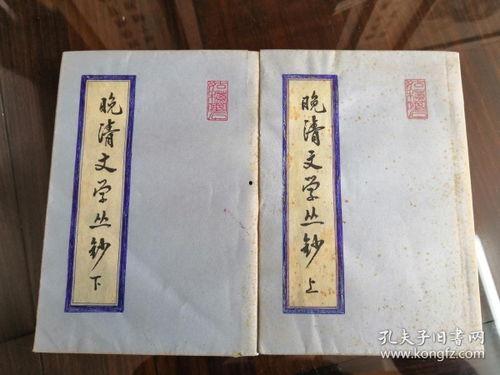 晚清文学丛钞 下
晚清文学丛钞 上
孔夫子旧书网
www.kongfz.com